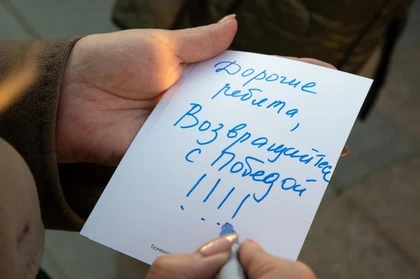 Дорогие
ребята,
Возвращайтесь
с Победой
!!!!